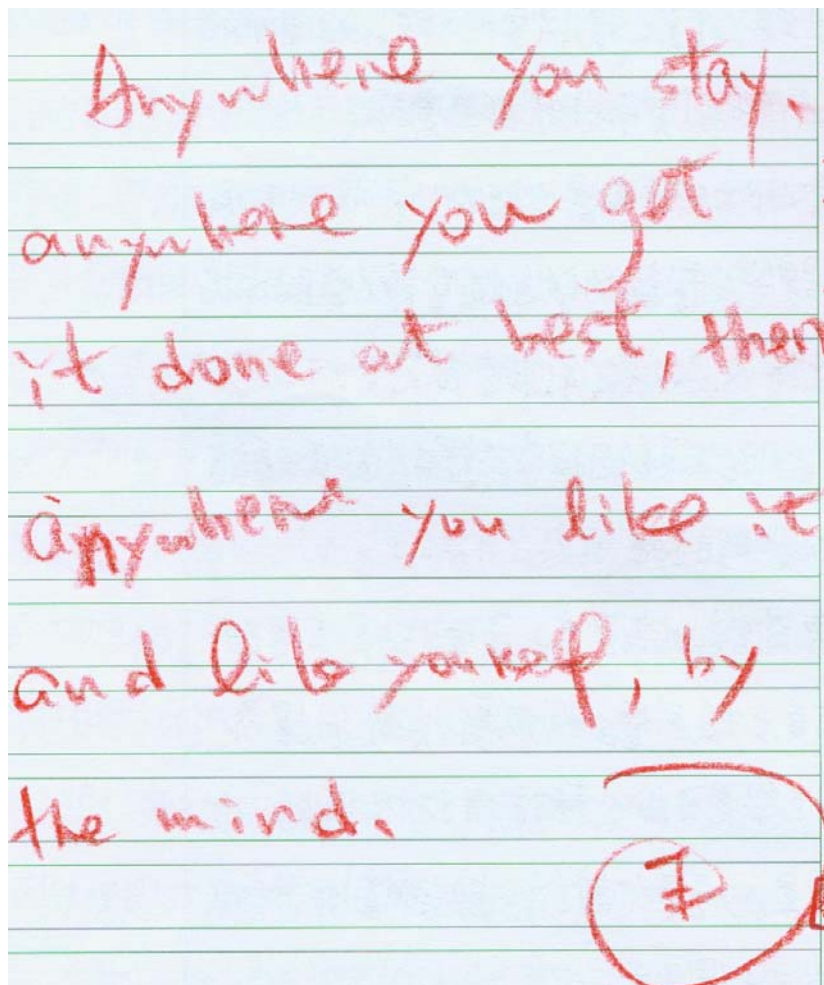 Anywhere you stay.
anywhere you get
it done at best, then
anywhere you like it
and like yourself, by
the mind.